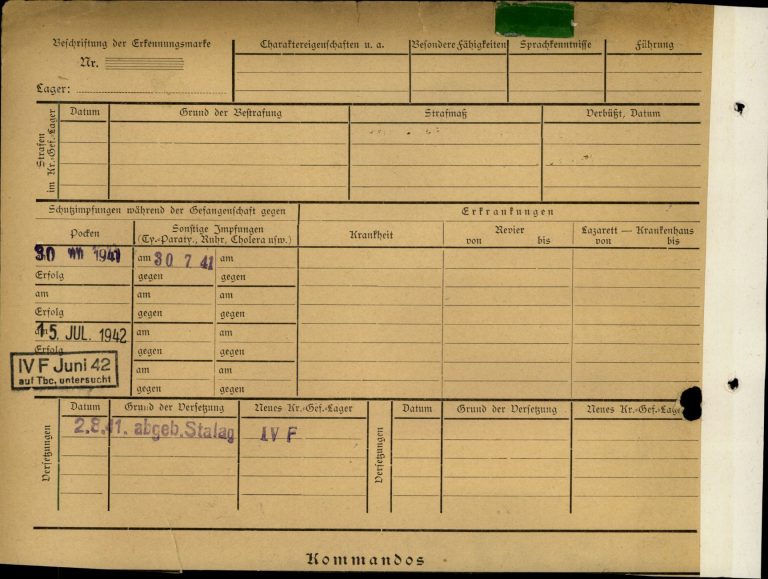 Beschriftung der Erkennungsmarke
Nr.
Lager:
Charaktereigenschaften u. a.
Besondere Fähigkeiten
Sprachkenntnisse
Führung
Strafen
im Kr.-Gef.-Lager
Datum
Grund der Bestrafung
Strafmaß
Verbüßt, Datum
Schutzimpfungen während der Gefangenschaft gegen
Erkrankungen
Pocken
Sonstige Impfungen
(Ty.-Paraty., Ruhr, Cholera usw.)
Krankheit
Revier
von bis
Lazarett — Krankenhaus
von bis
30 1941
am 30 7 41 am
Erfolg gegen gegen
am am am
Erfolg gegen gegen
am 15. JUL. 1942 am am
Erfolg gegen gegen
IV F Juni 42
auf Tbc. untersucht
am am
gegen gegen
Versetzungen
Datum Grund der Versetzung Neues Kr.-Gef.-Lager
2.8.41. abgeb. Stalag IV F
Versetzungen
Datum Grund der Versetzung Neues Kr.-Gef.-Lager
Kommandos